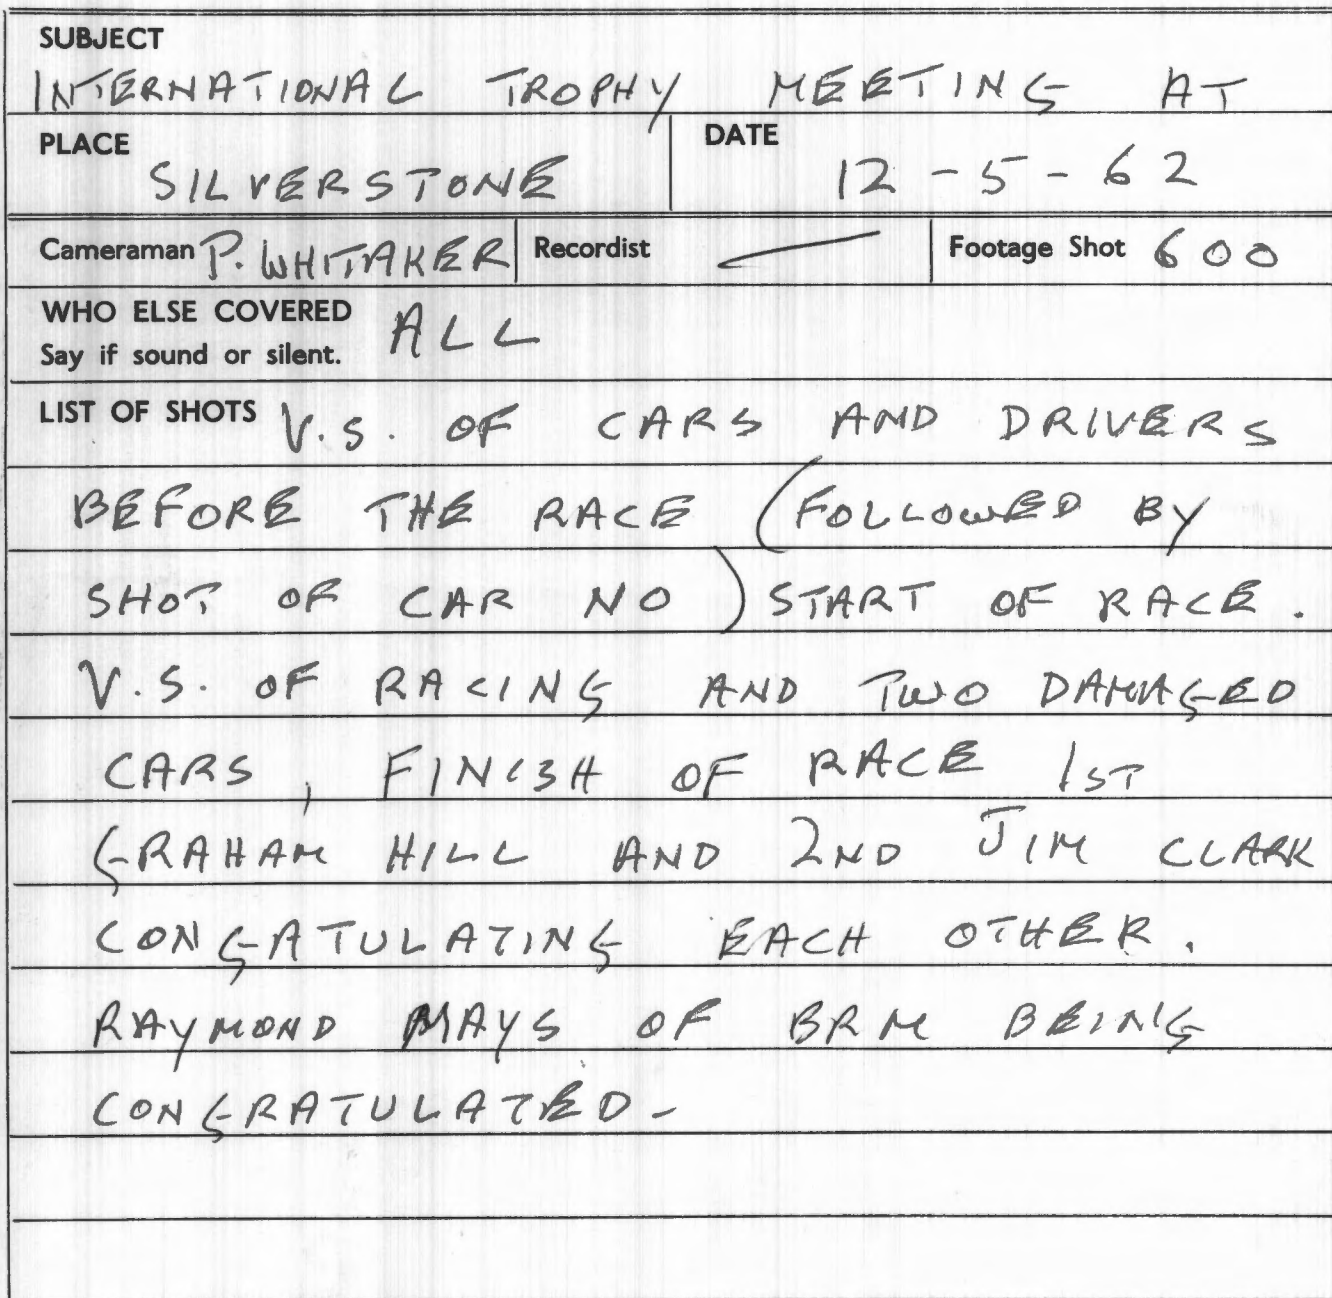 SUBJECT
INTERNATIONAL TROPHY MEETING AT
PLACE SILVERSTONE DATE 12-5-62
Cameraman P. WHITTAKER Recordist — Footage Shot 600
WHO ELSE COVERED ALL
Say if sound or silent.
LIST OF SHOTS V.S. OF CARS AND DRIVERS
BEFORE THE RACE (FOLLOWED BY
SHOT OF CAR NO) START OF RACE.
V.S. OF RACING AND TWO DAMAGED
CARS, FINISH OF RACE 1ST
GRAHAM HILL AND 2ND JIM CLARK
CONGATULATING EACH OTHER.
RAYMOND MAYS OF BRM BEING
CONGRATULATED-